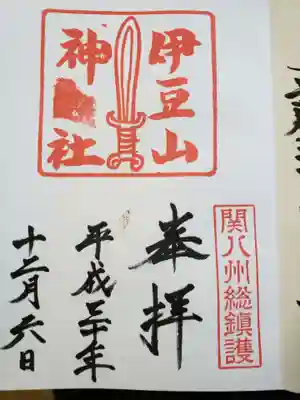 関八州総鎮護
奉拝
伊豆山
神社
平成三十年
十二月六日